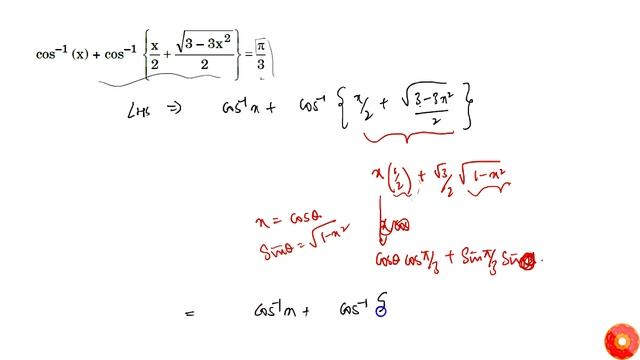 cos⁻¹ (x) + cos⁻¹ { x/2 + √(3 − 3x²)/2 } = π/3
LHS ⇒ cos⁻¹x + cos⁻¹ { x/2 + √(3−3x²)/2 }
x(1/2) + √3/2 √(1−x²)
x = cosθ
sinθ = √(1−x²)
cosθ cos π/3 + sin π/3 sin
= cos⁻¹x + cos⁻¹ {